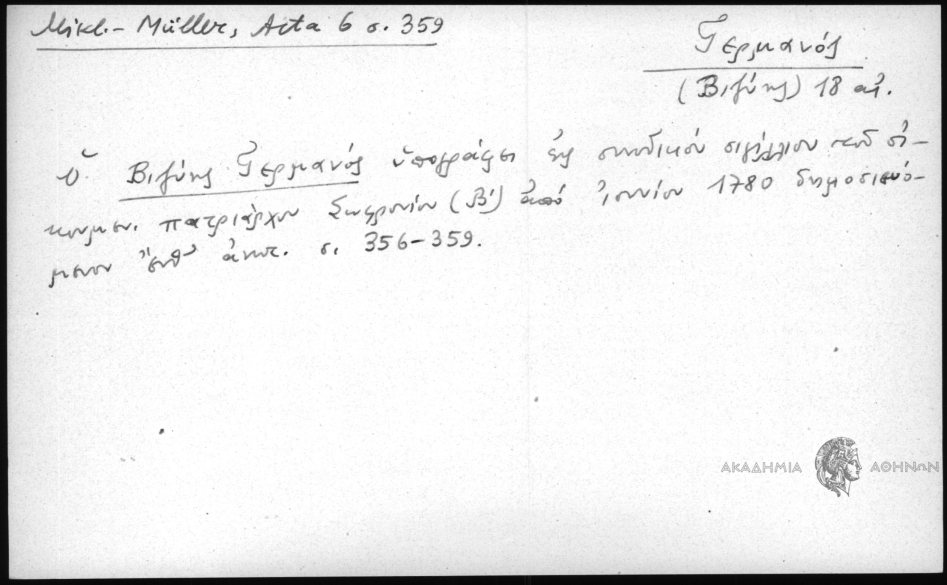 Mikl.- Müller, Acta 6 σ. 359
Γερμανός
(Βιζύης) 18 αἰ.
Ὁ Βιζύης Γερμανός ὑπογράφει εἰς συνοδικόν σιγίλλιον τοῦ οἰ-
κουμεν. πατριάρχου Σωφρονίου (Β') ἀπό Ἰουνίου 1780 δημοσιευό-
μενον ἔνθ' ἀνωτ. σ. 356-359.
ΑΚΑΔΗΜΙΑ ΑΘΗΝΩΝ